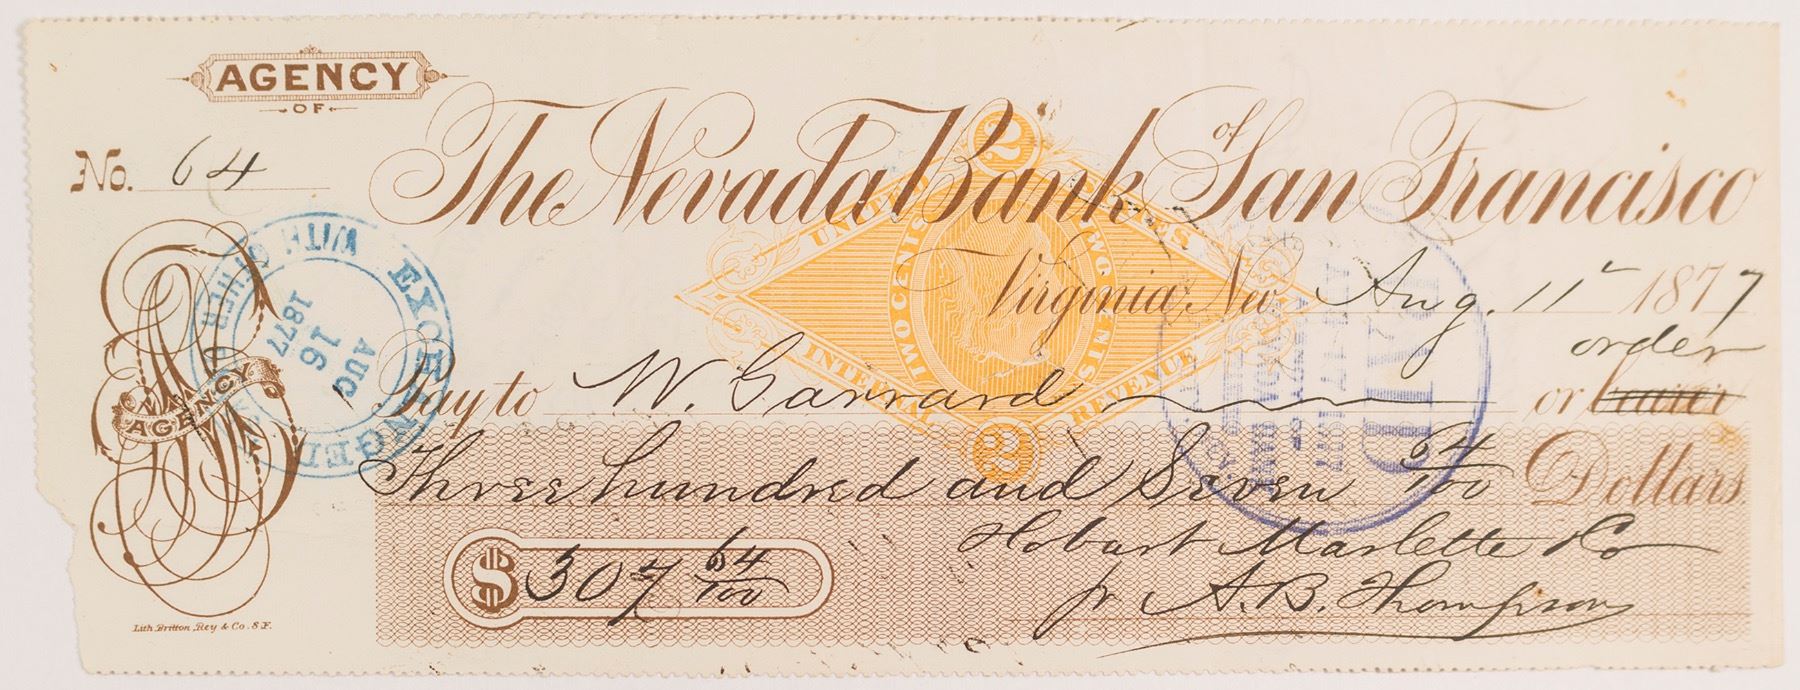 AGENCY
OF
No. 64
The Nevada Bank of San Francisco
UNITED STATES
INTERNAL REVENUE
TWO CENTS
TWO CENTS
2
2
Virginia, Nev. Aug. 11 1877
order
Pay to W. Garrard or bearer
Three hundred and Seven 64/100 Dollars
$ 307 64/100
Hobart Marlette & Co
pr A. B. Thompson
AGENCY
EXCHANGED
WITH OTHER
AUG
16
1877
PAID
Lith. Britton, Rey & Co. S.F.